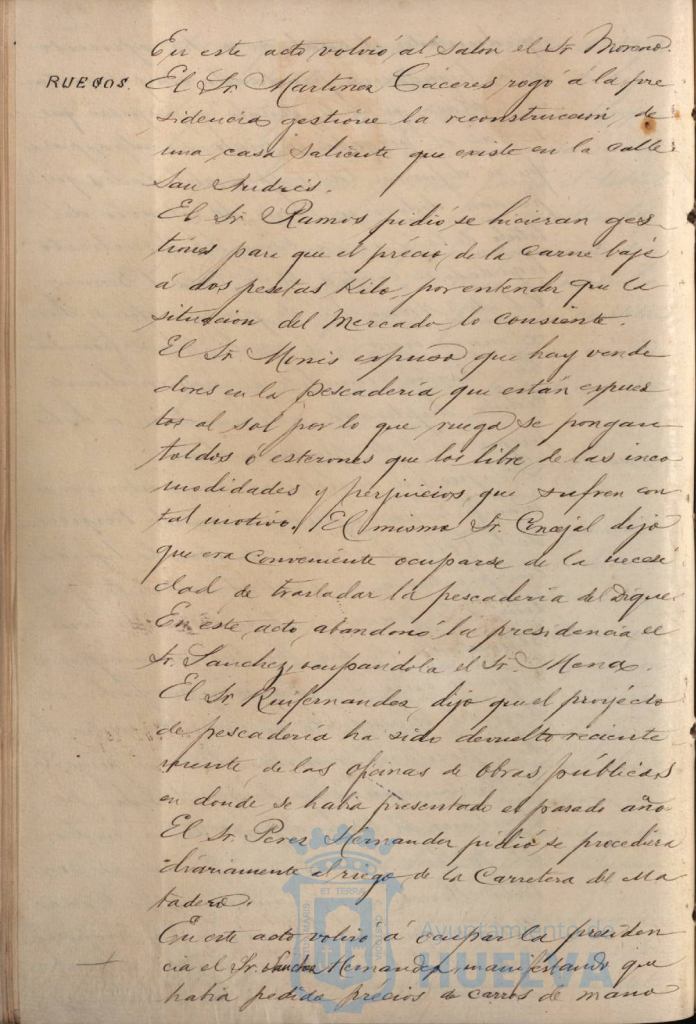 En este acto volvió al salon el Sr. Moreno.
RUEGOS. El Sr. Martinez Caceres rogó á la pre
sidencia gestione la reconstrucion, de
una casa saliente que existe en la calle
San Andrés.
El Sr. Ramos pidió se hicieran ges-
tiones para que el précio, de la carne bajé
á dos pesetas Kilo, por entender que la
situacion del Mercado lo consiente.
El Sr. Monis expuso que hay vende
dores en la pescadería, que están expues
tos al sol por lo que ruega se pongan
toldos ó esterones que los libre, de las inco
modidades y perjuicios, que sufren con
tal motivo. El mismo Sr. Concejal dijó
que era conveniente ocuparse de la necesi
dad de trasladar la pescadería del Dique.
En este acto, abandonó la presidencia el
Sr. Sanchez, ocupandola el Sr. Mena.
El Sr. Ruifernandez, dijo que el proyécto
de pescadería ha sido devuelto reciente
mente, de las oficinas de obras públicas
en donde se habia presentado el pasado año
El Sr. Perez Hernandez pidió se procediera
diariamente al riego, de la Carretera del Ma
tadero.
En este acto volvió á ocupar la presiden
cia el Sr. Sanchez Hernandez manifestando que
habia pedido precios de carros de mano
ET TERRA
Ayuntamiento de
HUELVA